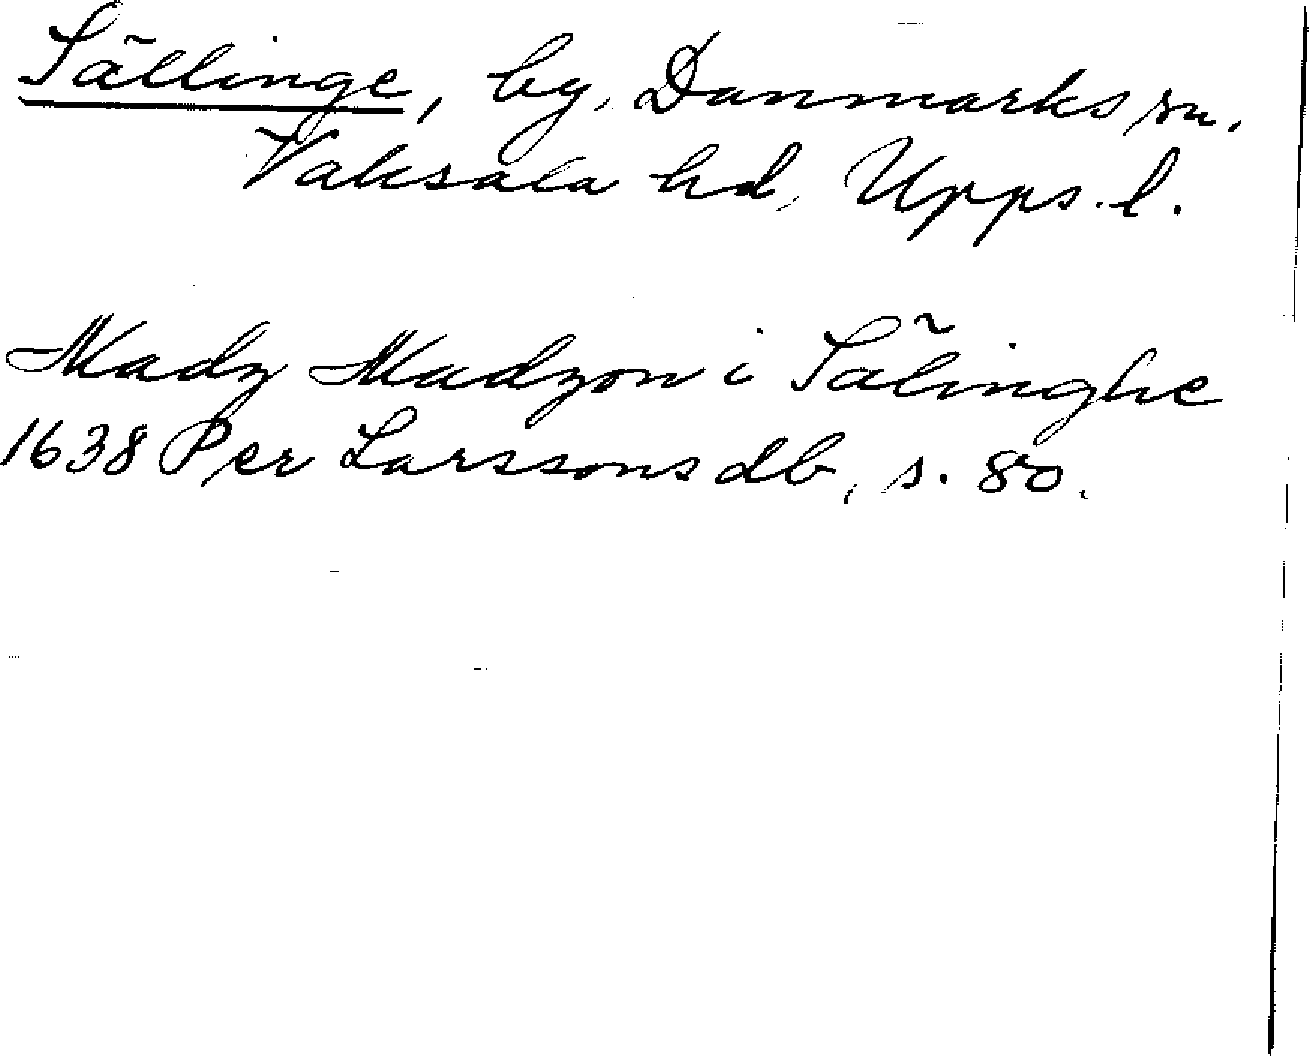 Sällinge, by, Danmarks sn,
Vaksala hd, Upps. l.
Madz Madzon i Sälinghe
1638 Per Larssons db, s. 80.